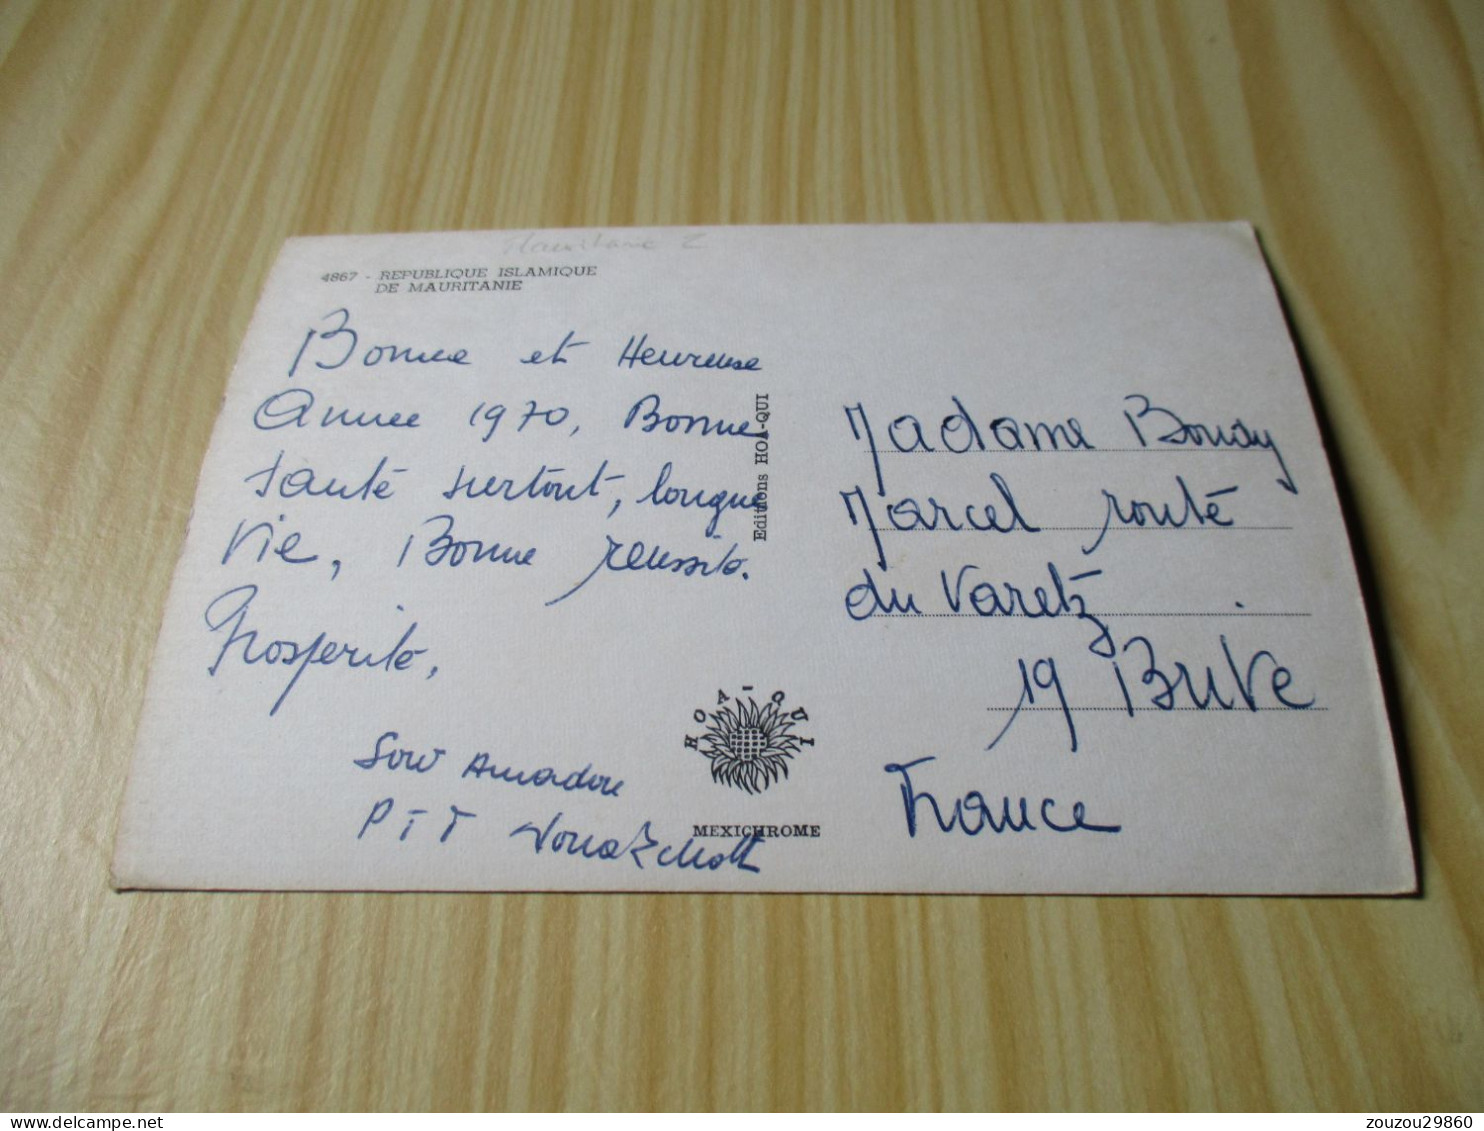 Mauritanie
4867 - REPUBLIQUE ISLAMIQUE
DE MAURITANIE
Bonne et Heureuse
Année 1970, Bonne
santé surtout, longue
vie, Bonne reussite.
Prosperité,
Sow Amadou
PTT Nouakchott
Editions HOA-QUI
HOA-QUI
MEXICHROME
Madame Bouay
Marcel routé
du Varetz
19 BRIVE
France
zouzou29860